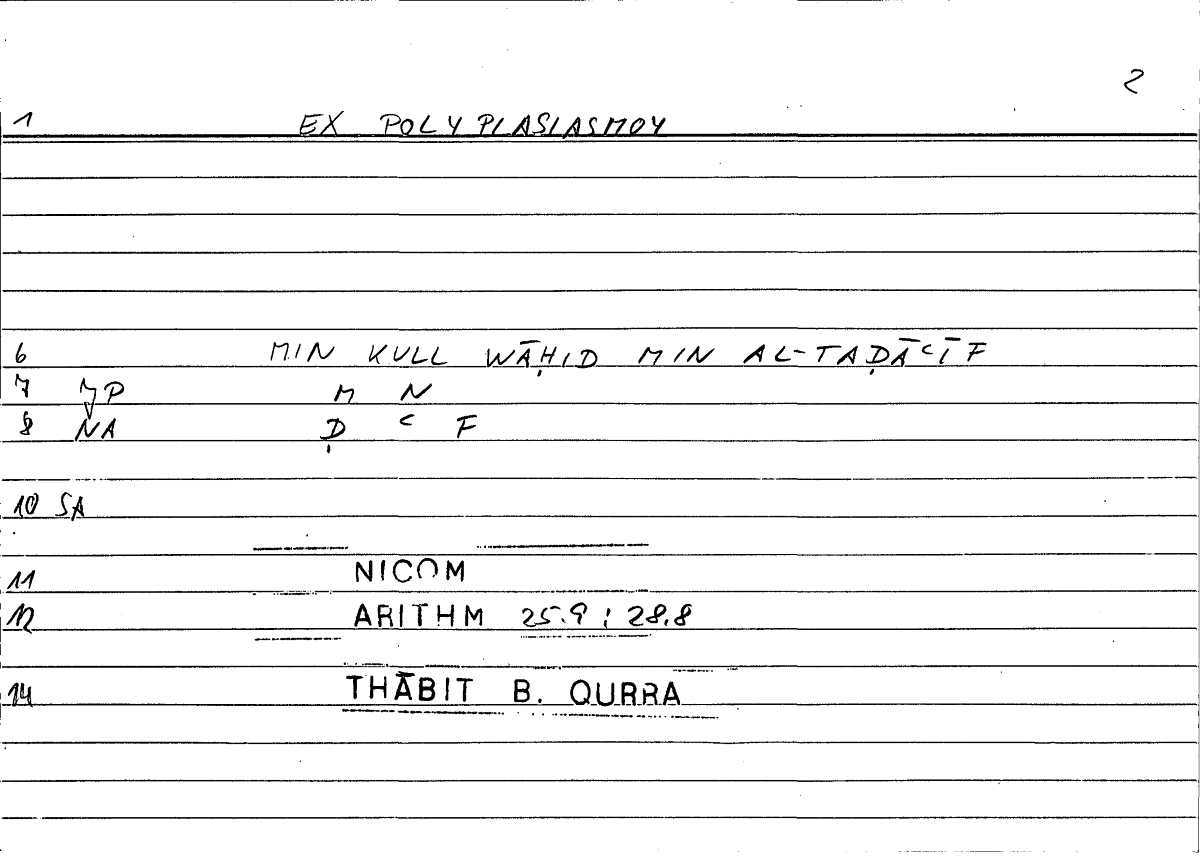 2
1 EX POLYPLASIASMOY
6 MIN KULL WĀḤID MIN AL-TAḌĀʿĪF
7 P M N
8 NA Ḍ ʿ F
10 SA
11 NICOM
12 ARITHM 25.9 ; 28.8
14 THĀBIT B. QURRA